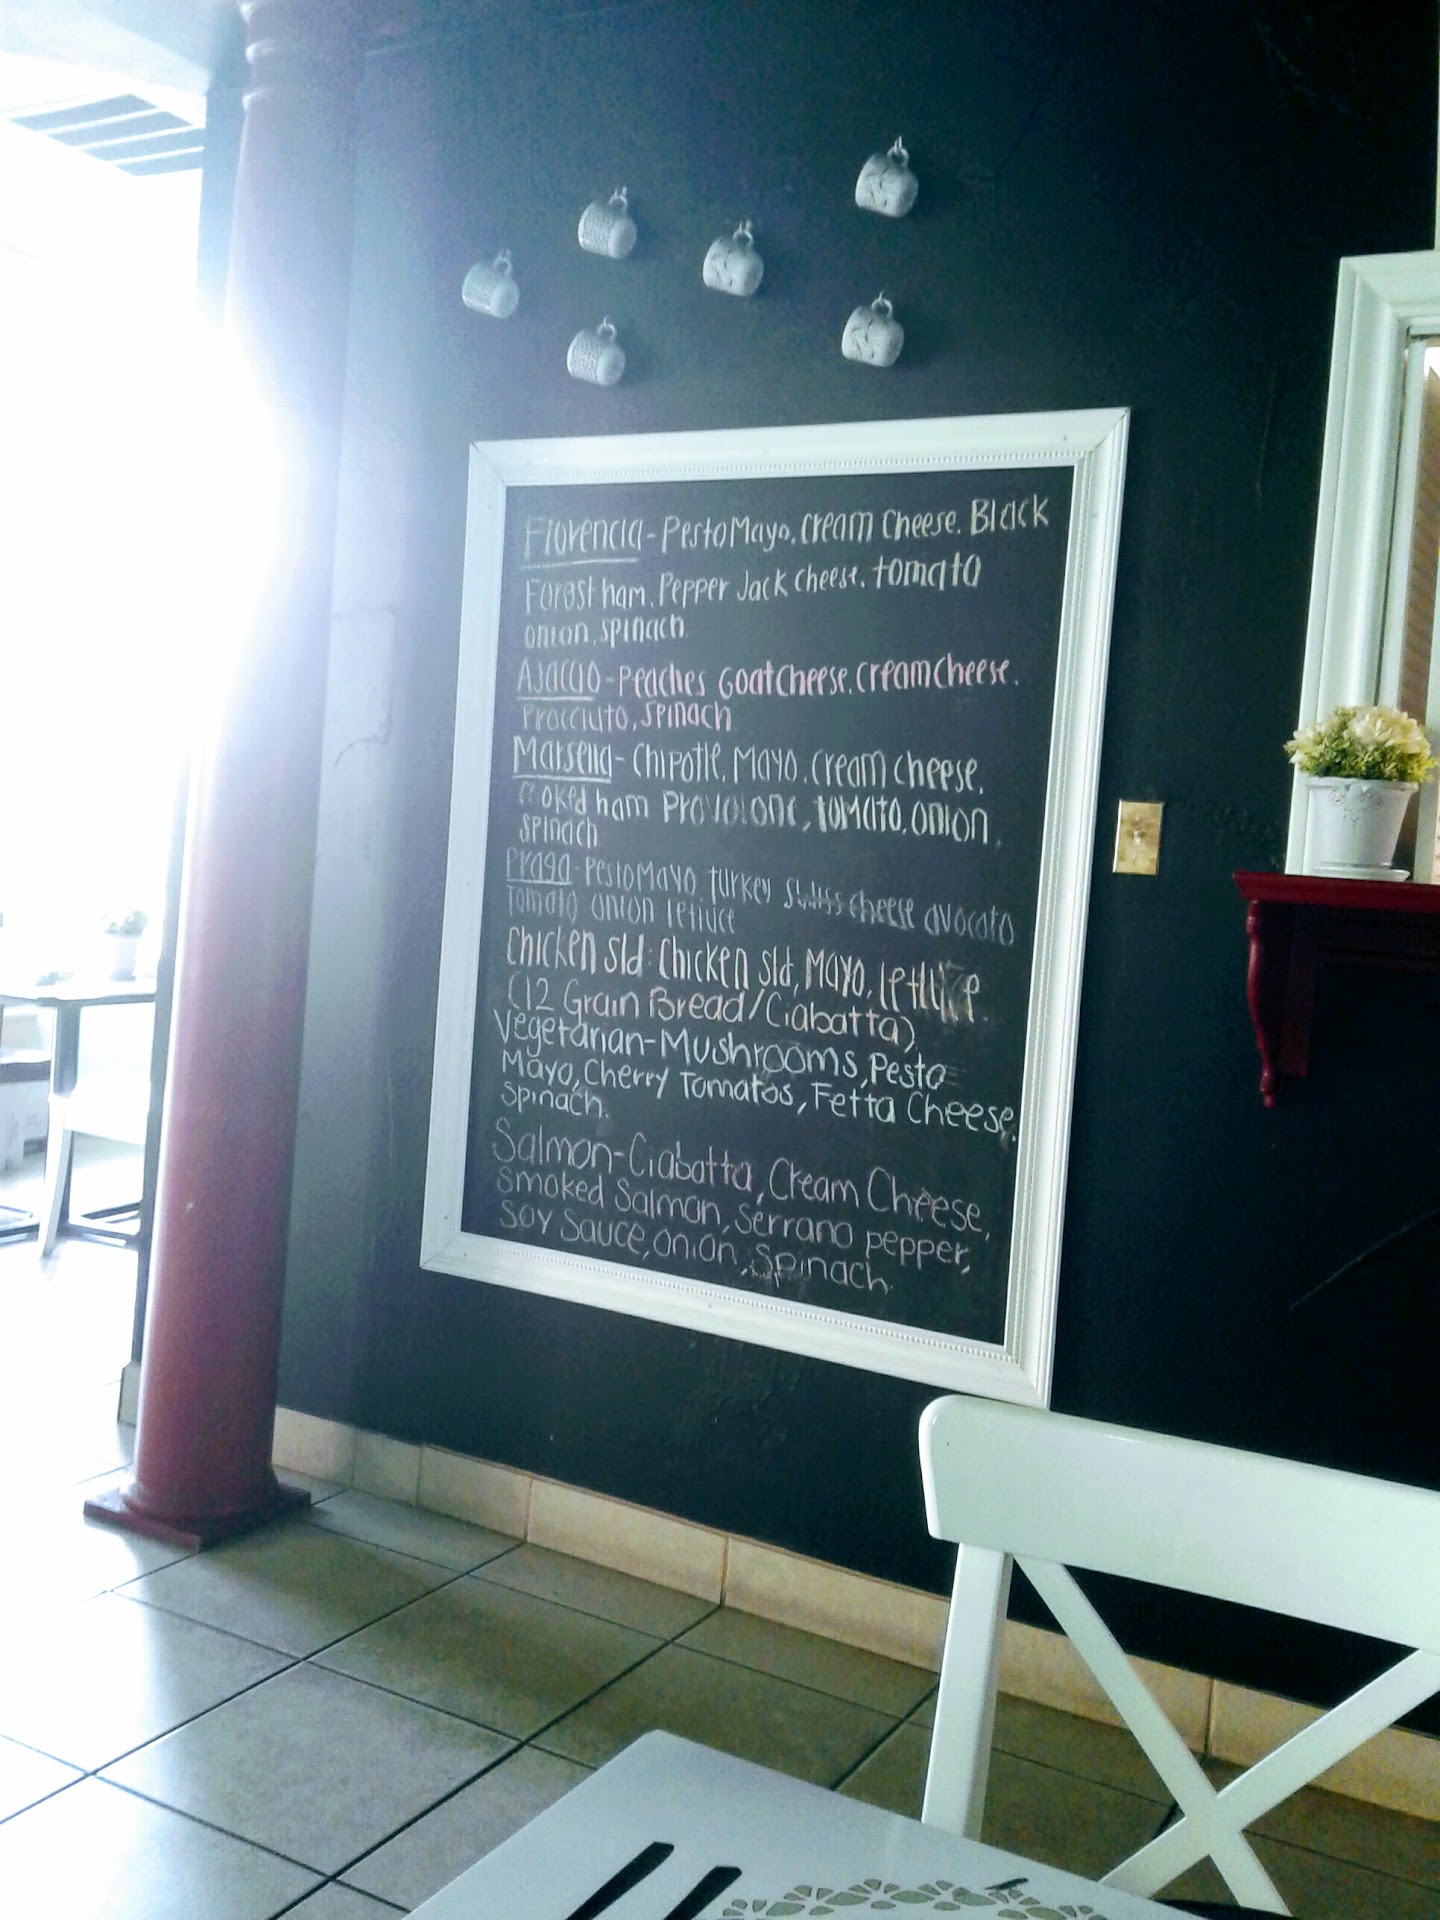 Florencia - Pesto Mayo, Cream Cheese. Black
Forest ham, Pepper Jack cheese, tomato
onion, spinach
Ajaccio - Peaches Goat Cheese, Cream Cheese.
Procciuto, spinach
Marsella - Chipotle, Mayo, Cream Cheese,
ham Provolone, tomato, onion,
spinach
Praga - Pesto Mayo, turkey swiss cheese avocato
Tomato onion lettuce
Chicken sld: Chicken sld, Mayo, lettuce
(12 Grain Bread/Ciabatta)
Vegetarian - Mushrooms, Pesto
Mayo, Cherry Tomatos, Fetta Cheese,
Spinach.
Salmon - Ciabatta, Cream Cheese,
Smoked Salmon, Serrano pepper,
Soy Sauce, onion, Spinach.